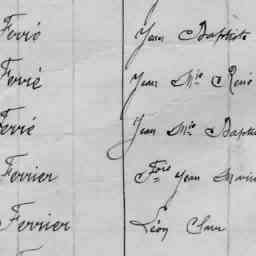 Ferrié Jean Baptiste
Ferrié Jean Mie René
Ferrié Jean Mie Baptis
Ferrier Fois Jean Marie
Ferrier Léon Clair